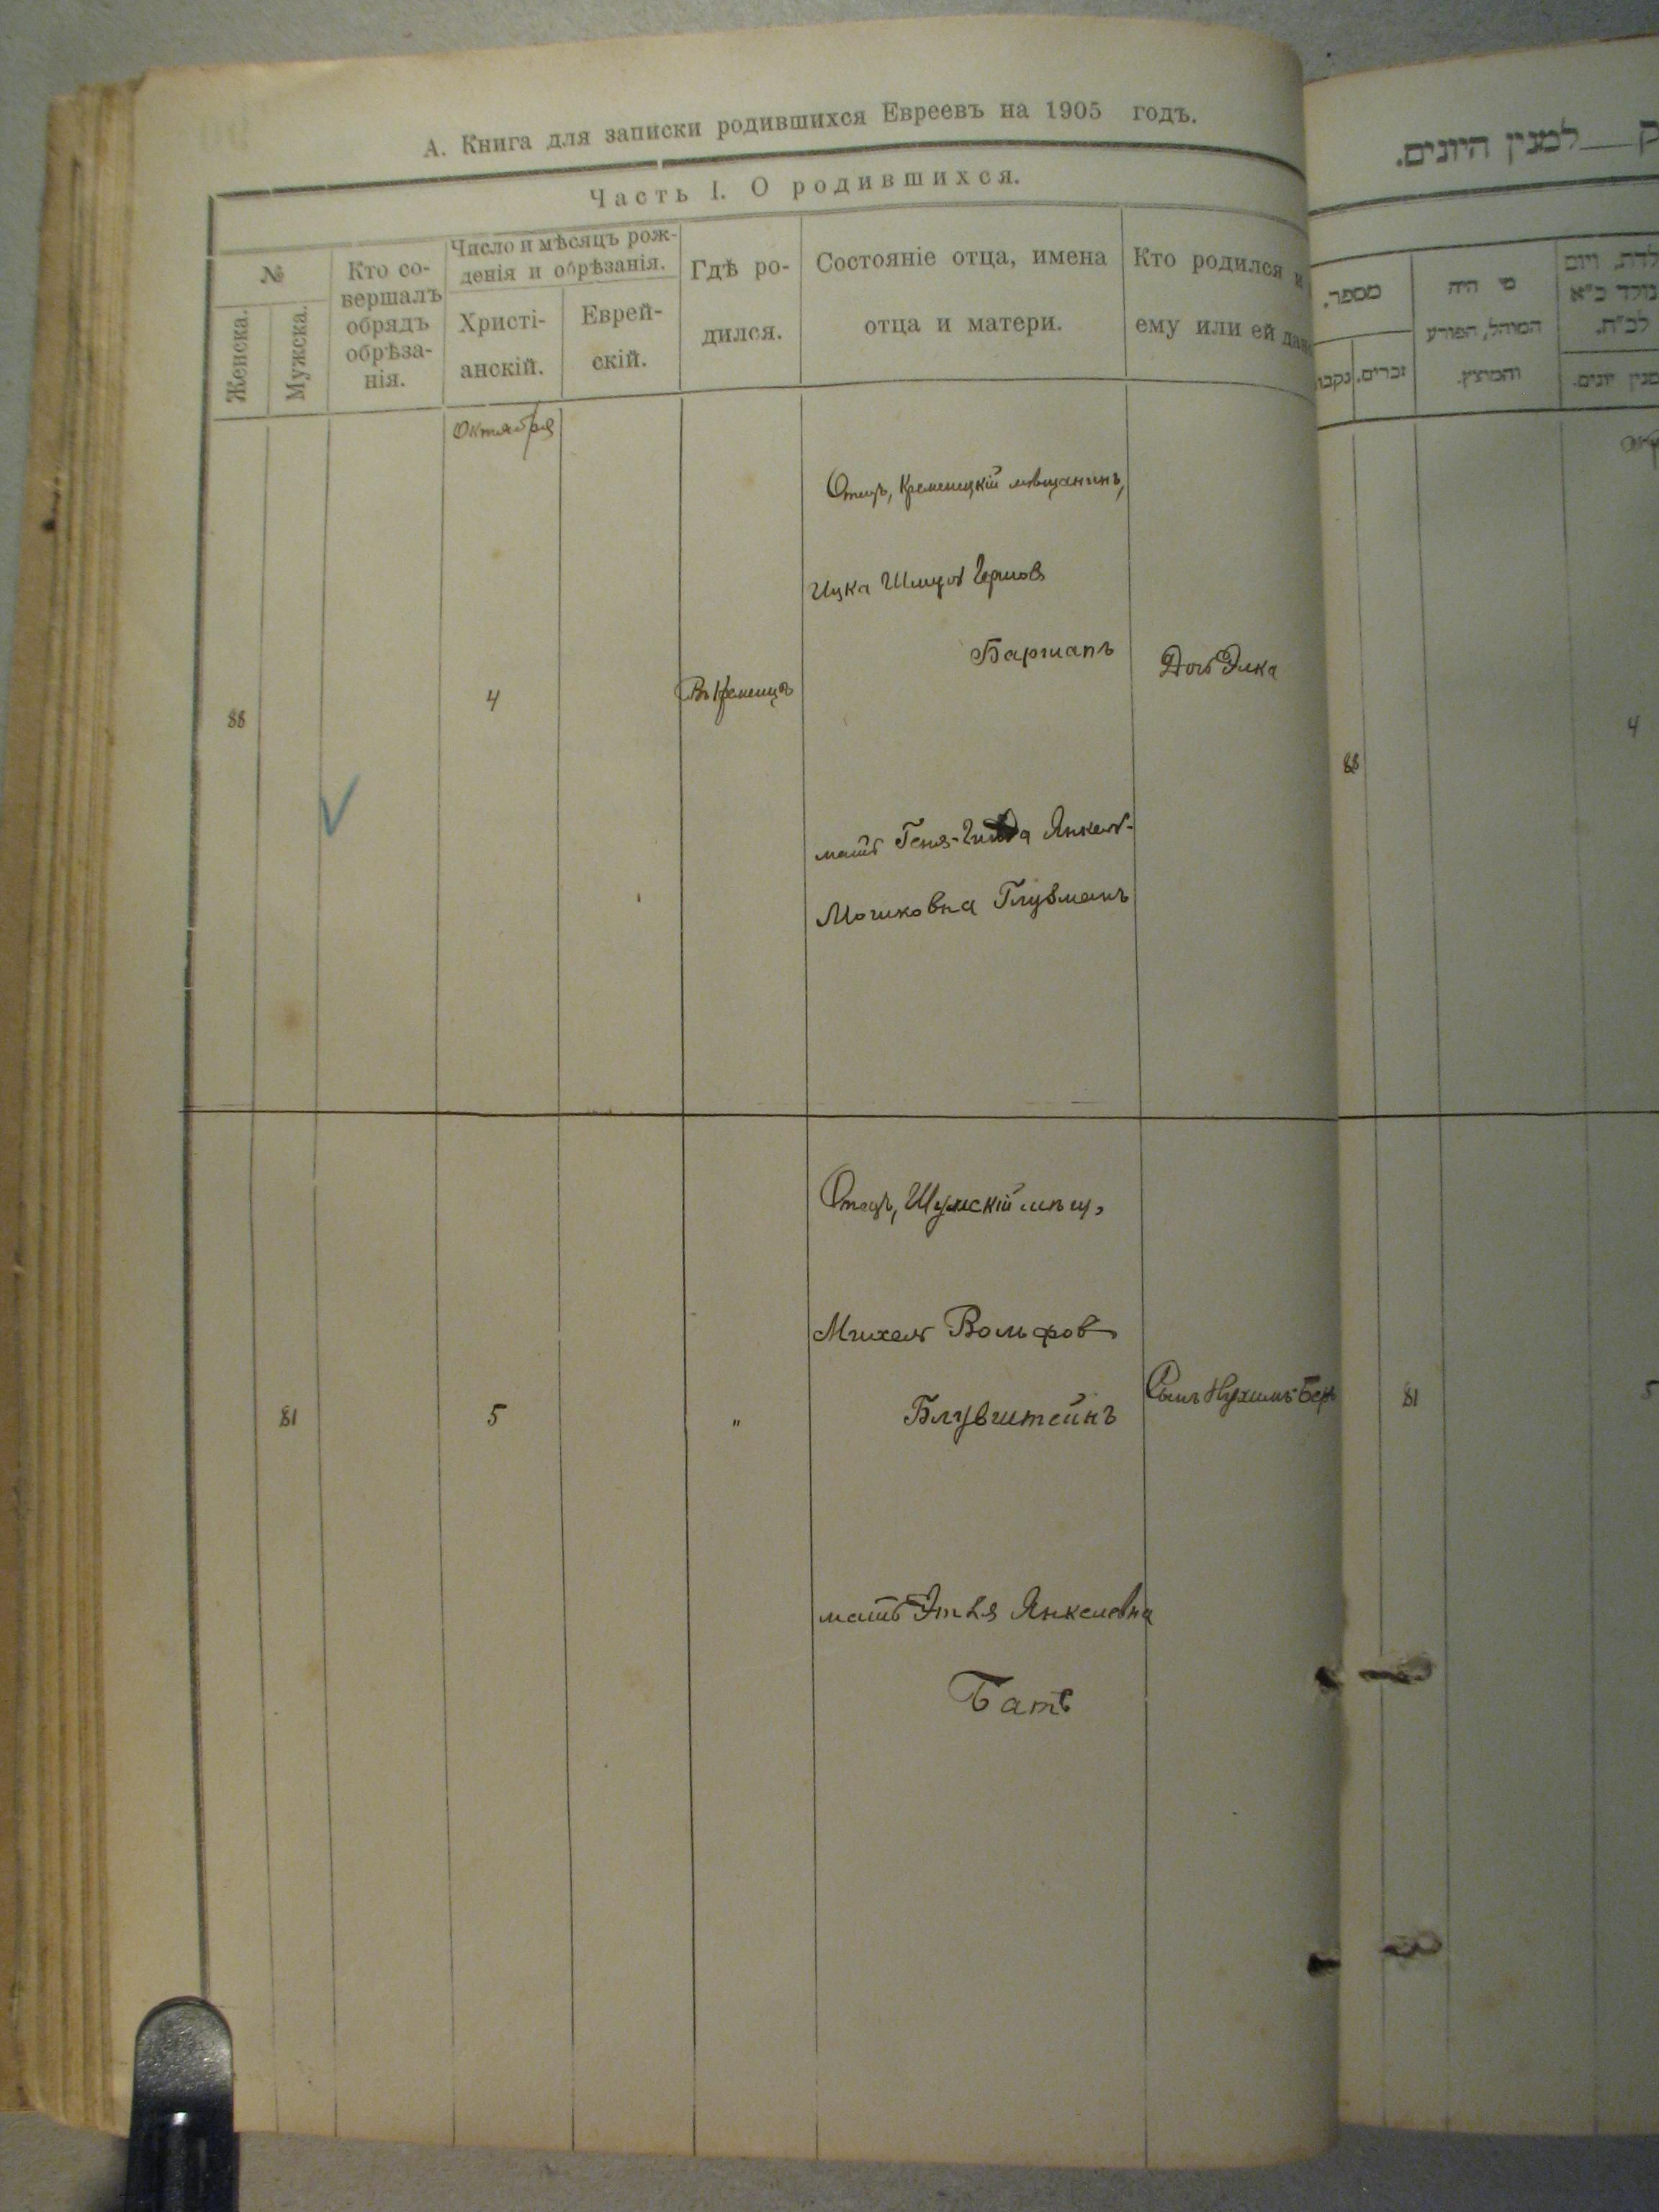 А. Книга для записки родившихся Евреевъ на 1905 годъ.
Часть I. О родившихся.
№
Женска.
Мужска.
Кто со-
вершалъ
обрядъ
обрѣза-
нія.
Число и мѣсяцъ рож-
денія и обрѣзанія.
Христі-
анскій.
Еврей-
скій.
Гдѣ ро-
дился.
Состояніе отца, имена
отца и матери.
Кто родился и
ему или ей дано
Октября
88
4
Въ Кременцѣ
Отецъ, Кременецкій мѣщанинъ,
Ицка Шмуль Гершов
матъ Геня- Янкель-
Мошковна Глузманъ
Дочь Элка
81
5
"
Отецъ, Шумскій мѣщ.
Михель Вольфов
Блувштейнъ
мать Этля Янкелевна
Бать
Сынъ Нухимъ-Бер
למנין היונים.
מספר.
זכרים.
נקבו
מי היה
המוהל, הפורע
והמוצץ.
לדת, ויום
נולד כ"א
לב"ח.
מנין יונים.
88
4
81
5